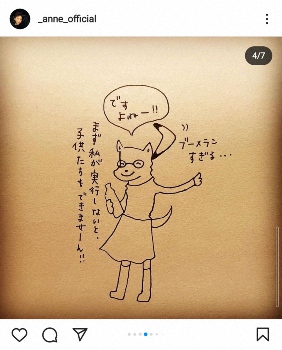 _anne_official
4/7
です
よねー!!
ブーメラン
すぎる...
まず私が実行しないと、
子供たちもできませーん!!